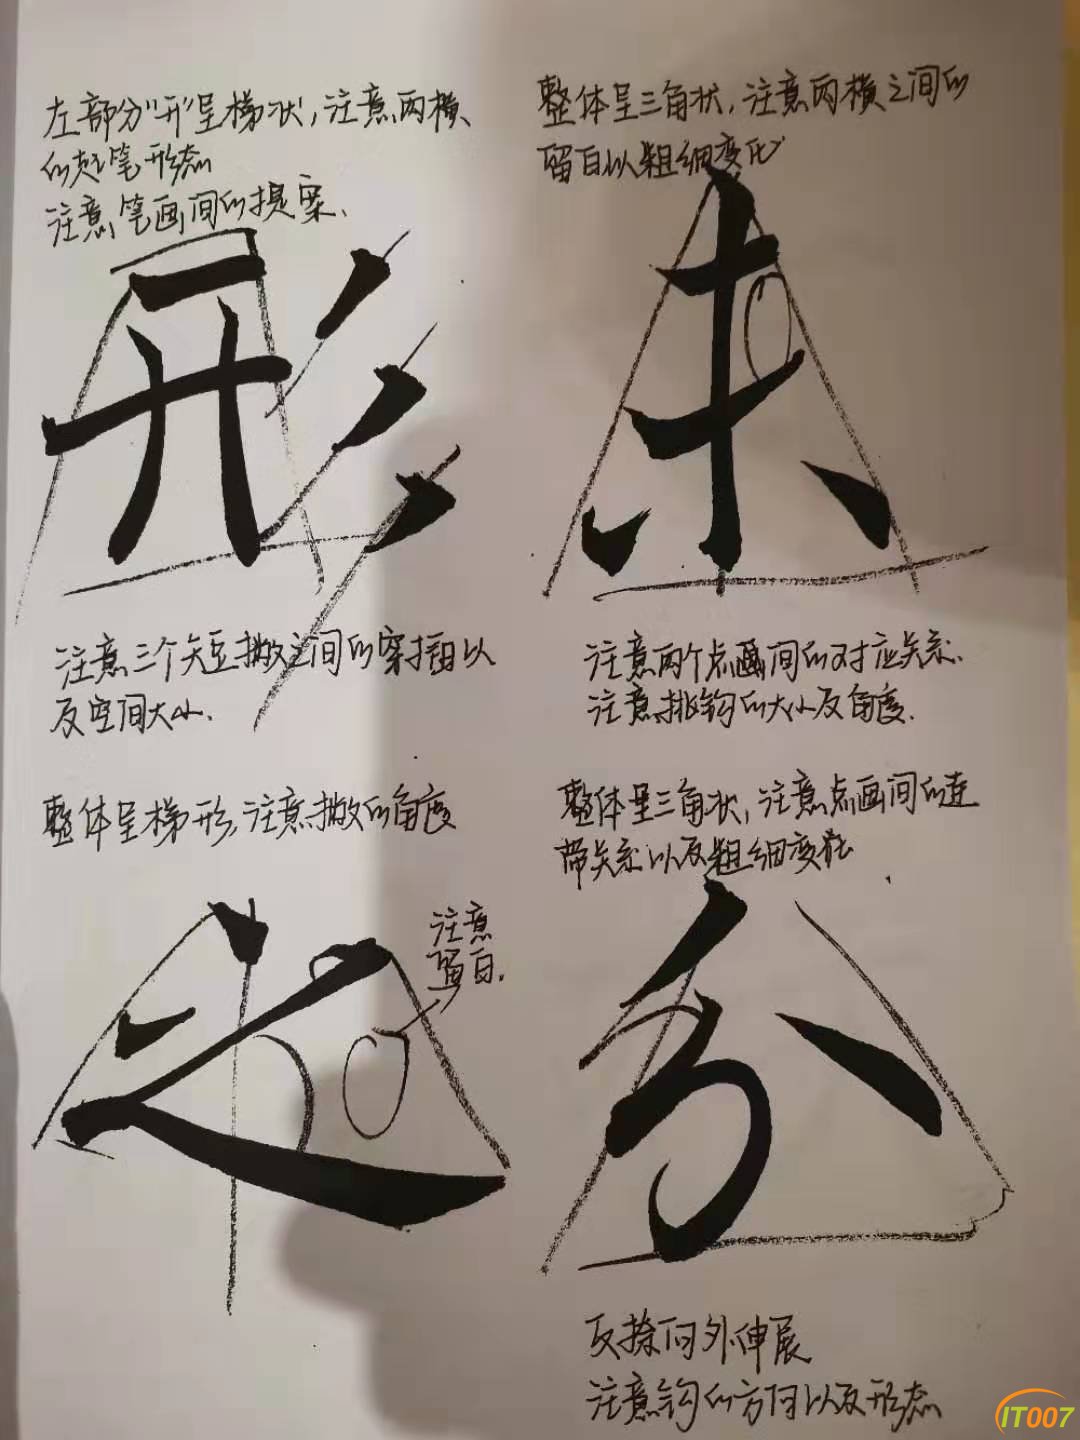 左部分"开"呈梯状，注意两横
的起笔形态
注意笔画间的提案.
形
注意三个短撇之间的穿插以
及空间大小.
整体呈三角状，注意两横之间的
留白以粗细变化
未
注意两个点画间的对应关系.
注意挑钩的大小及角度.
整体呈梯形,注意撇的角度
注意
留白.
之
整体呈三角状，注意点画间的连
带关系以及粗细变化
分
反捺向外伸展
注意钩的方向以及形态
IT007